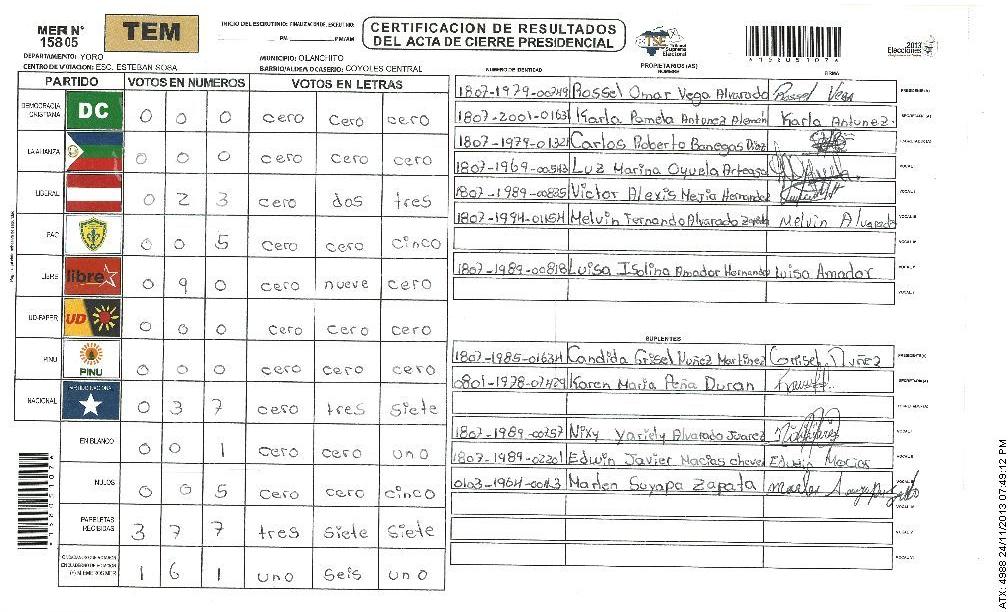 MER N°
15805
TEM
INICIO DEL ESCRUTINIO: FINALIZACION DE ESCRUTINIO:
PM PM/AM
CERTIFICACION DE RESULTADOS
DEL ACTA DE CIERRE PRESIDENCIAL
TSE Tribunal Supremo Electoral
2013
Elecciones
DEPARTAMENTO: YORO
MUNICIPIO: OLANCHITO
CENTRO DE VOTACION: ESC. ESTEBAN SOSA
BARRIO/ALDEA O CASERIO: COYOLES CENTRAL
PARTIDO VOTOS EN NUMEROS VOTOS EN LETRAS
DEMOCRACIA CRISTIANA DC 0 0 0 cero cero cero
LA ALIANZA 0 0 0 cero cero cero
LIBERAL 0 2 3 cero dos tres
PAC 0 0 5 cero cero cinco
LIBRE libre 0 9 0 cero nueve cero
UD-FAPER UD 0 0 0 cero cero cero
PINU PINU 0 0 0 cero cero cero
NACIONAL PARTIDO NACIONAL 0 3 7 cero tres siete
EN BLANCO 0 0 1 cero cero uno
NULOS 0 0 5 cero cero cinco
PAPELETAS RECIBIDAS 3 7 7 tres siete siete
1 6 1 uno seis uno
NUMERO DE IDENTIDAD PROPIETARIOS (AS) NOMBRE FIRMA
1807-1979-00249 Rossel Omar Vega Alvarado Rossel Vega PRESIDENTE(A)
1807-2001-01631 Karla Pamela Antunez Aleman Karla Antunez. SECRETARIO(A)
1807-1979-01321 Carlos Roberto Banegas Diaz
1807-1969-00543 Luz Marina Oyuela Arteaga VOCAL I
1807-1989-00825 Victor Alexis Mejia Hernandez VOCAL II
1807-1994-01454 Melvin Fernando Alvarado Zapata Melvin Alvarado VOCAL III
VOCAL IV
1807-1989-00818 Luisa Isolina Amador Hernandez Luisa Amador VOCAL V
SUPLENTES
1807-1985-01634 Candida Grisel Nuñez Martinez Grisel Nuñez PRESIDENTE(A)
0801-1978-07429 Karen Maria Peña Duran SECRETARIO(A)
1807-1989-00257 Nixy Yariely Alvarado Juarez VOCAL I
1807-1989-02201 Edwin Javier Macias chever Edwin Macias VOCAL II
0103-1964-00143 Marlen Suyapa Zapata
VOCAL V
VOCAL VI
ATX: 4988 24/11/2013 07:49:12 PM